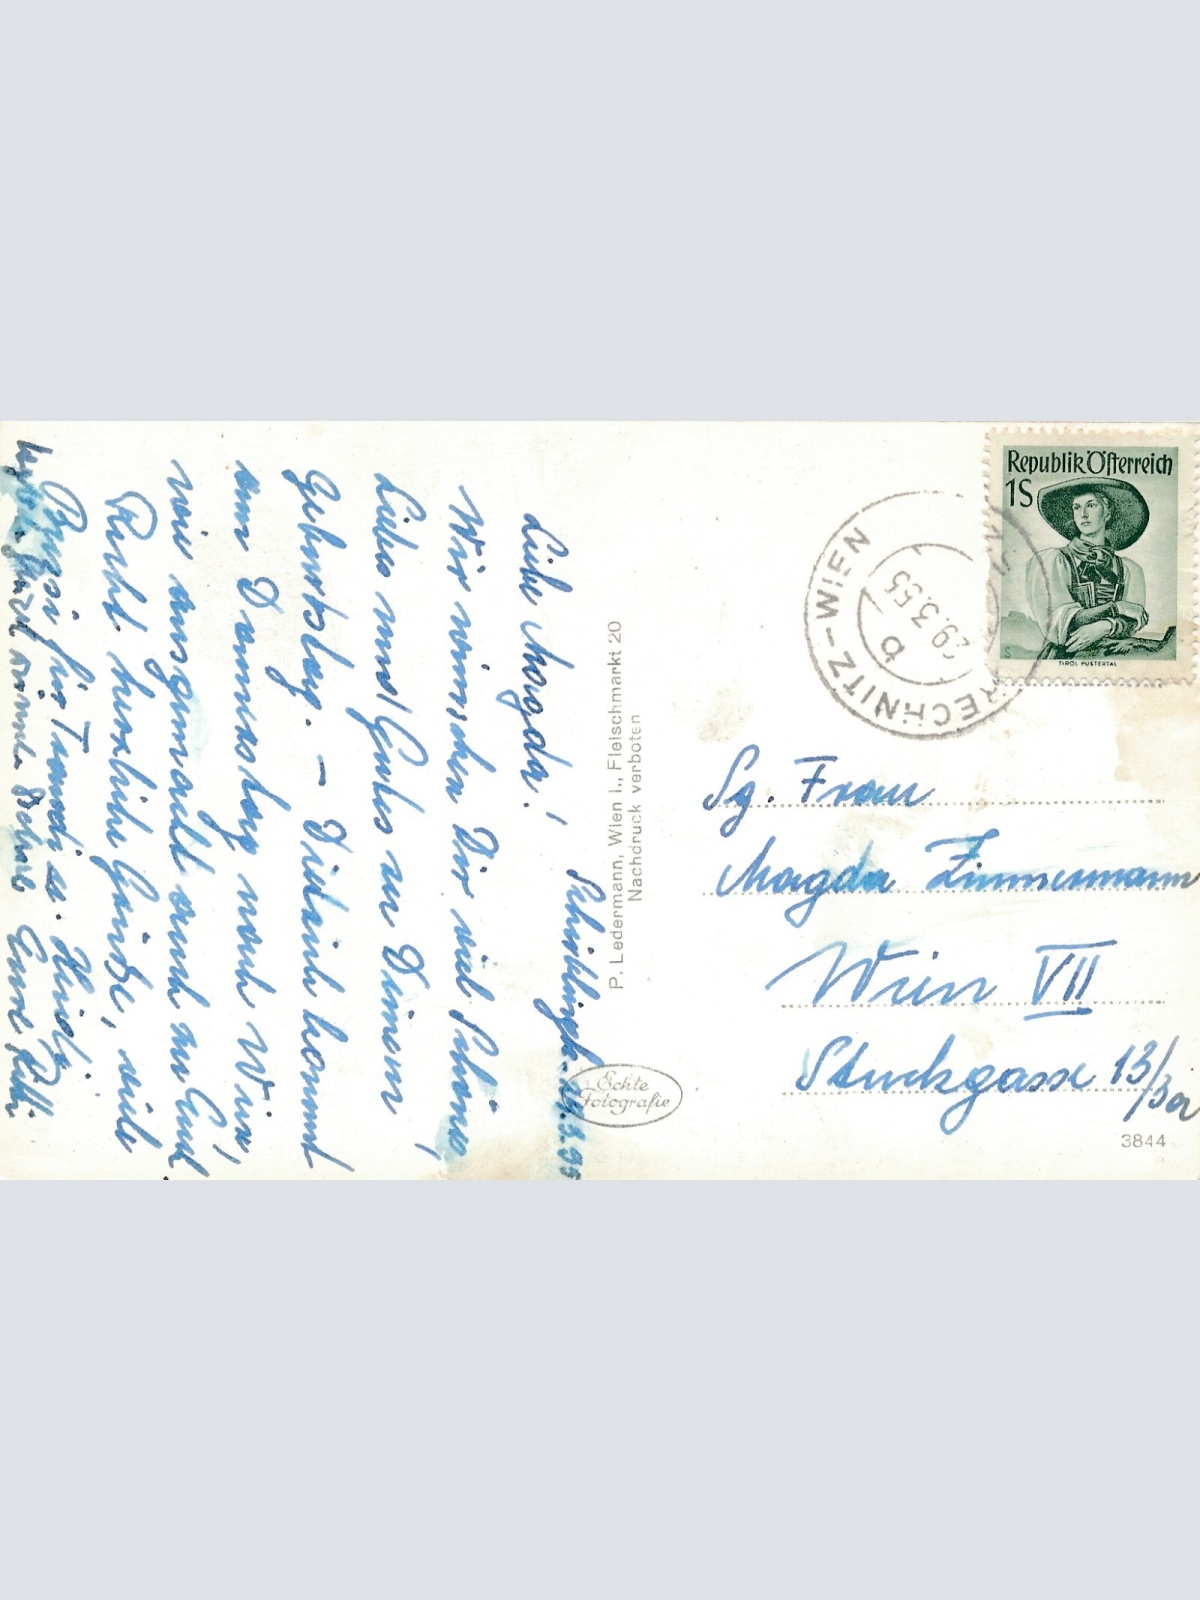 Schilbingk. 29.3.55
Liebe Magda!
Wir wünschen Dir viel Schönes,
Liebes und Gutes zu Deinem
Geburtstag. – Dieders kommt
am Donnerstag nach Wien,
wie ausgemacht auch zu Euch.
Recht herzliche Grüße, viele
Bussi für Tommi u. Heidi
Eure Lilli
P. Ledermann, Wien I., Fleischmarkt 20
Nachdruck verboten
Echte
Fotografie
Republik Österreich
1S
TIROL PUSTERTAL
RECHNITZ-WIEN
29.3.55
b
Sg. Frau
Magda Zimmermann
Wien VII
Stuckgasse 13/3a
3844